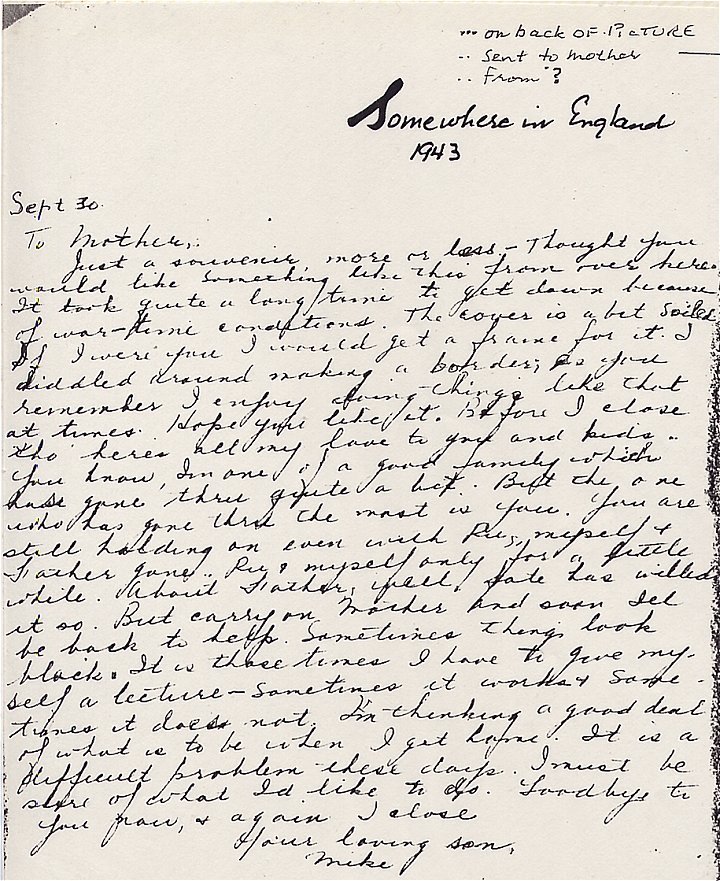 ... on back OF PICTURE
.. Sent to Mother
.. From ?
Somewhere in England
1943
Sept 30.
To Mother,
Just a souvenir more or less - Thought you
would like something like this from over here.
It took quite a long time to get down because
of war-time conditions. The cover is a bit soiled
If I were you I would get a frame for it. I
diddled around making a border; as you
remember I enjoy doing things like that
at times. Hope you like it. Before I close
tho here's all my love to you and kids..
You know, I'm one of a good family which
has gone thru quite a bit. But the one
who has gone thru the most is you. You are
still holding on even with myself &
Father gone.. & myself only for a little
while. About Father, well, fate has willed
it so. But carry on Mother and soon I'll
be back to help. Sometimes things look
black. It is those times I have to give my-
self a lecture - Sometimes it works & Some-
times it does not. I'm thinking a good deal
of what is to be when I get home. It is a
difficult problem these days. I must be
sure of what I'd like to do. Goodbye to
you now, & again I close
Your loving son,
Mike